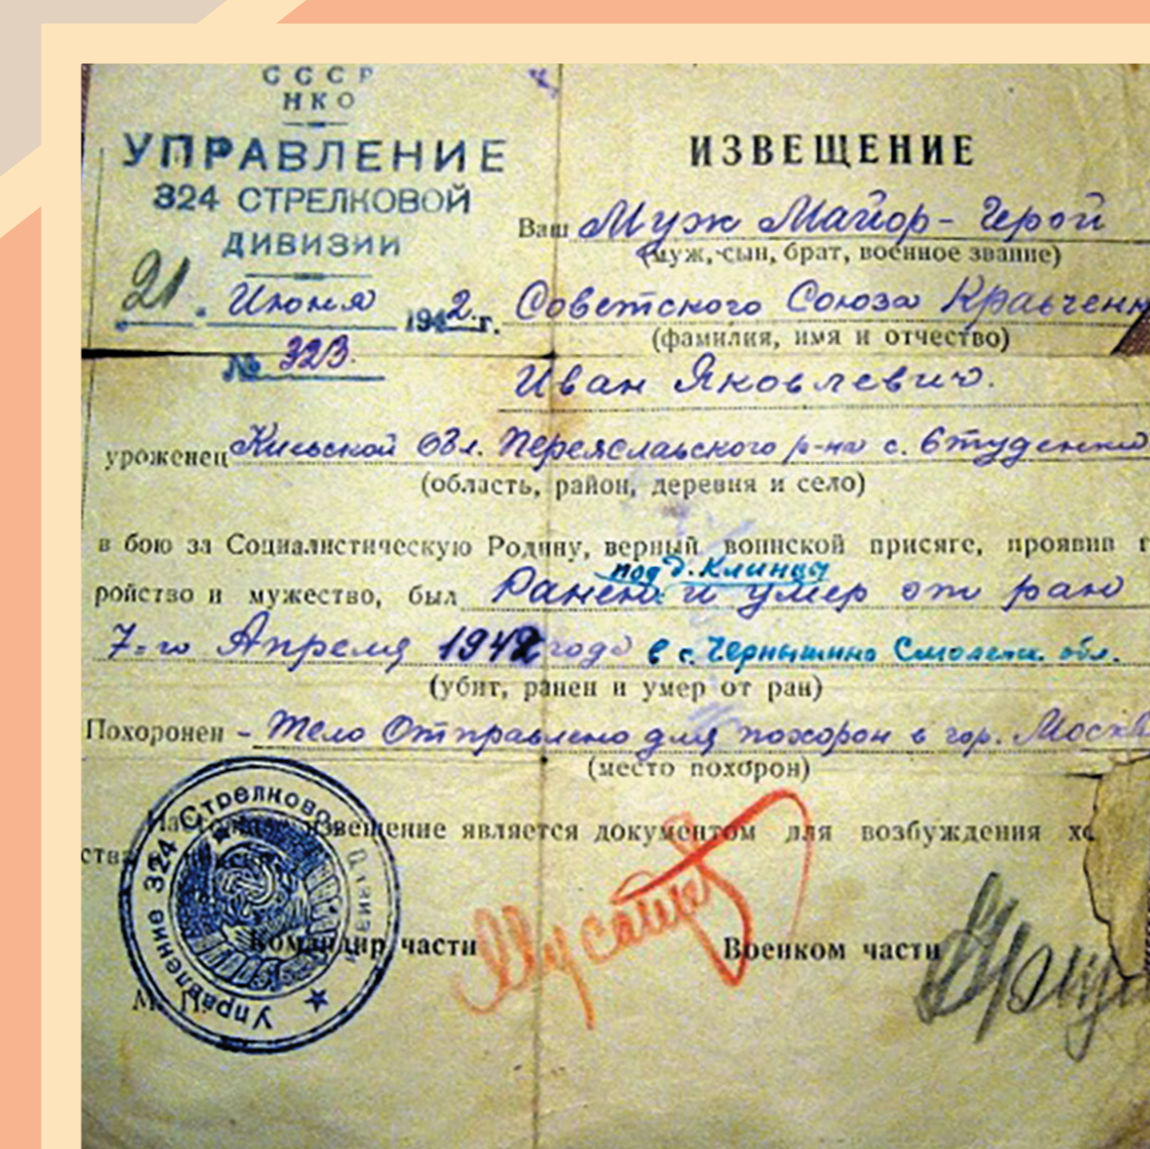 СССР
НКО
УПРАВЛЕНИЕ
324 СТРЕЛКОВОЙ
ДИВИЗИИ
21. Июня 1942 г.
№ 323.
ИЗВЕЩЕНИЕ
Ваш Муж Майор - Герой
(муж, сын, брат, военное звание)
Советского Союза Кравченк
(фамилия, имя и отчество)
Иван Яковлевич.
уроженец Киевской обл. Переяславского р-на с.
(область, район, деревня и село)
в бою за Социалистическую Родину, верный воинской присяге, проявив г
под д. Клинцы
ройство и мужество, был Ранен и умер от ран
7-го Апреля 1942 года в с. Чернышино Смоленск. обл.
(убит, ранен и умер от ран)
Похоронен - Тело Отправлено для похорон в гор. Москв
(место похорон)
извещение является документом для возбуждения хо
ства
Командир части
Военком части
М. П.
Управление 324 Стрелковой Дивизии